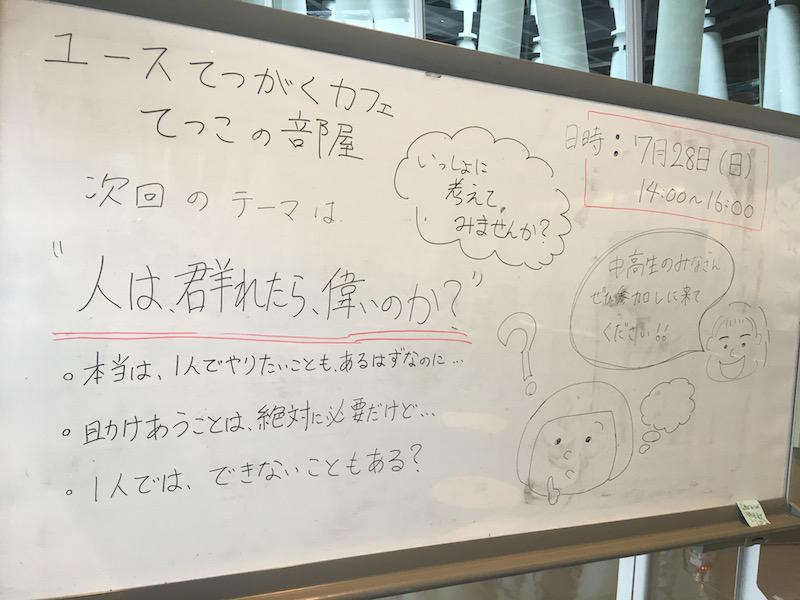 ユースてつがくカフェ
てつこの部屋
次回のテーマは
"人は、群れたら、偉いのか?"
。本当は、1人でやりたいことも、あるはずなのに…
。助けあうことは、絶対に必要だけど…
。1人では、できないこともある?
いっしょに
考えて
みませんか?
日時:7月28日(日)
14:00〜16:00
中高生のみなさん
ぜひ参加しに来て
ください!!
?